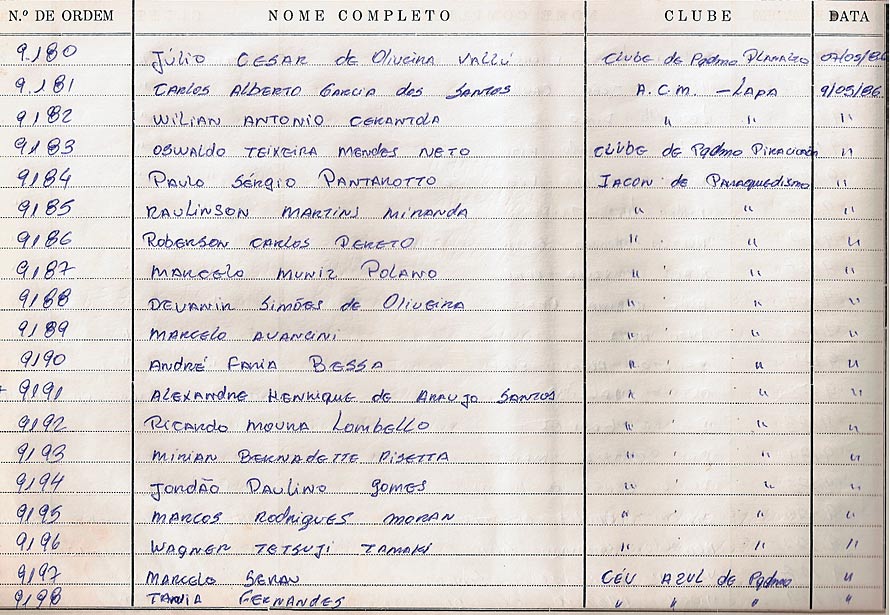 N.º DE ORDEM NOME COMPLETO CLUBE DATA
9.180 Júlio Cesar de Oliveira Vallú Clube de Pqdmo Planalto 07/05/86
9.181 Carlos Alberto Garcia dos Santos A.C.M. - Lapa 9/05/86
9182 Wilian Antonio Cerantola " " "
9183 Oswaldo Teixeira Mendes Neto Clube de Pqdmo "
9184 Paulo Sérgio Pantarotto Iacon de Paraquedismo "
9185 Raulinson Martins Miranda " " "
9186 Roberson Carlos Pereto " " "
9187 Marcelo Muniz Polano " " "
9188 Devanir Simões de Oliveira " " "
9189 Marcelo Avancini " " "
9190 André Faria Bessa " " "
9191 Alexandre Henrique de Araujo Santos " " "
9192 Ricardo Moura Lombello " " "
9193 Mirian Bernadette Pisetta " " "
9194 Jordão Paulino Gomes " " "
9195 Marcos Rodrigues Moran " " "
9196 Wagner Tetsuji Tamaki " " "
9197 Marcelo Céu Azul de Pqdmo "
9198 Tania Fernandes " " "